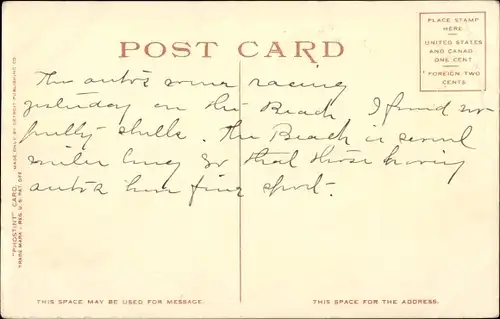 POST CARD
PLACE STAMP
HERE
UNITED STATES
AND CANADA
ONE CENT
FOREIGN TWO
CENTS
The autos were racing
yesterday on this Beach I found no
pretty shells. The Beach is several
miles long so that those having
autos have fine sport.
"PHOSTINT" CARD. MADE ONLY BY DETROIT PUBLISHING CO.
TRADE MARK REG. U.S. PAT. OFF.
THIS SPACE MAY BE USED FOR MESSAGE.
THIS SPACE FOR THE ADDRESS.